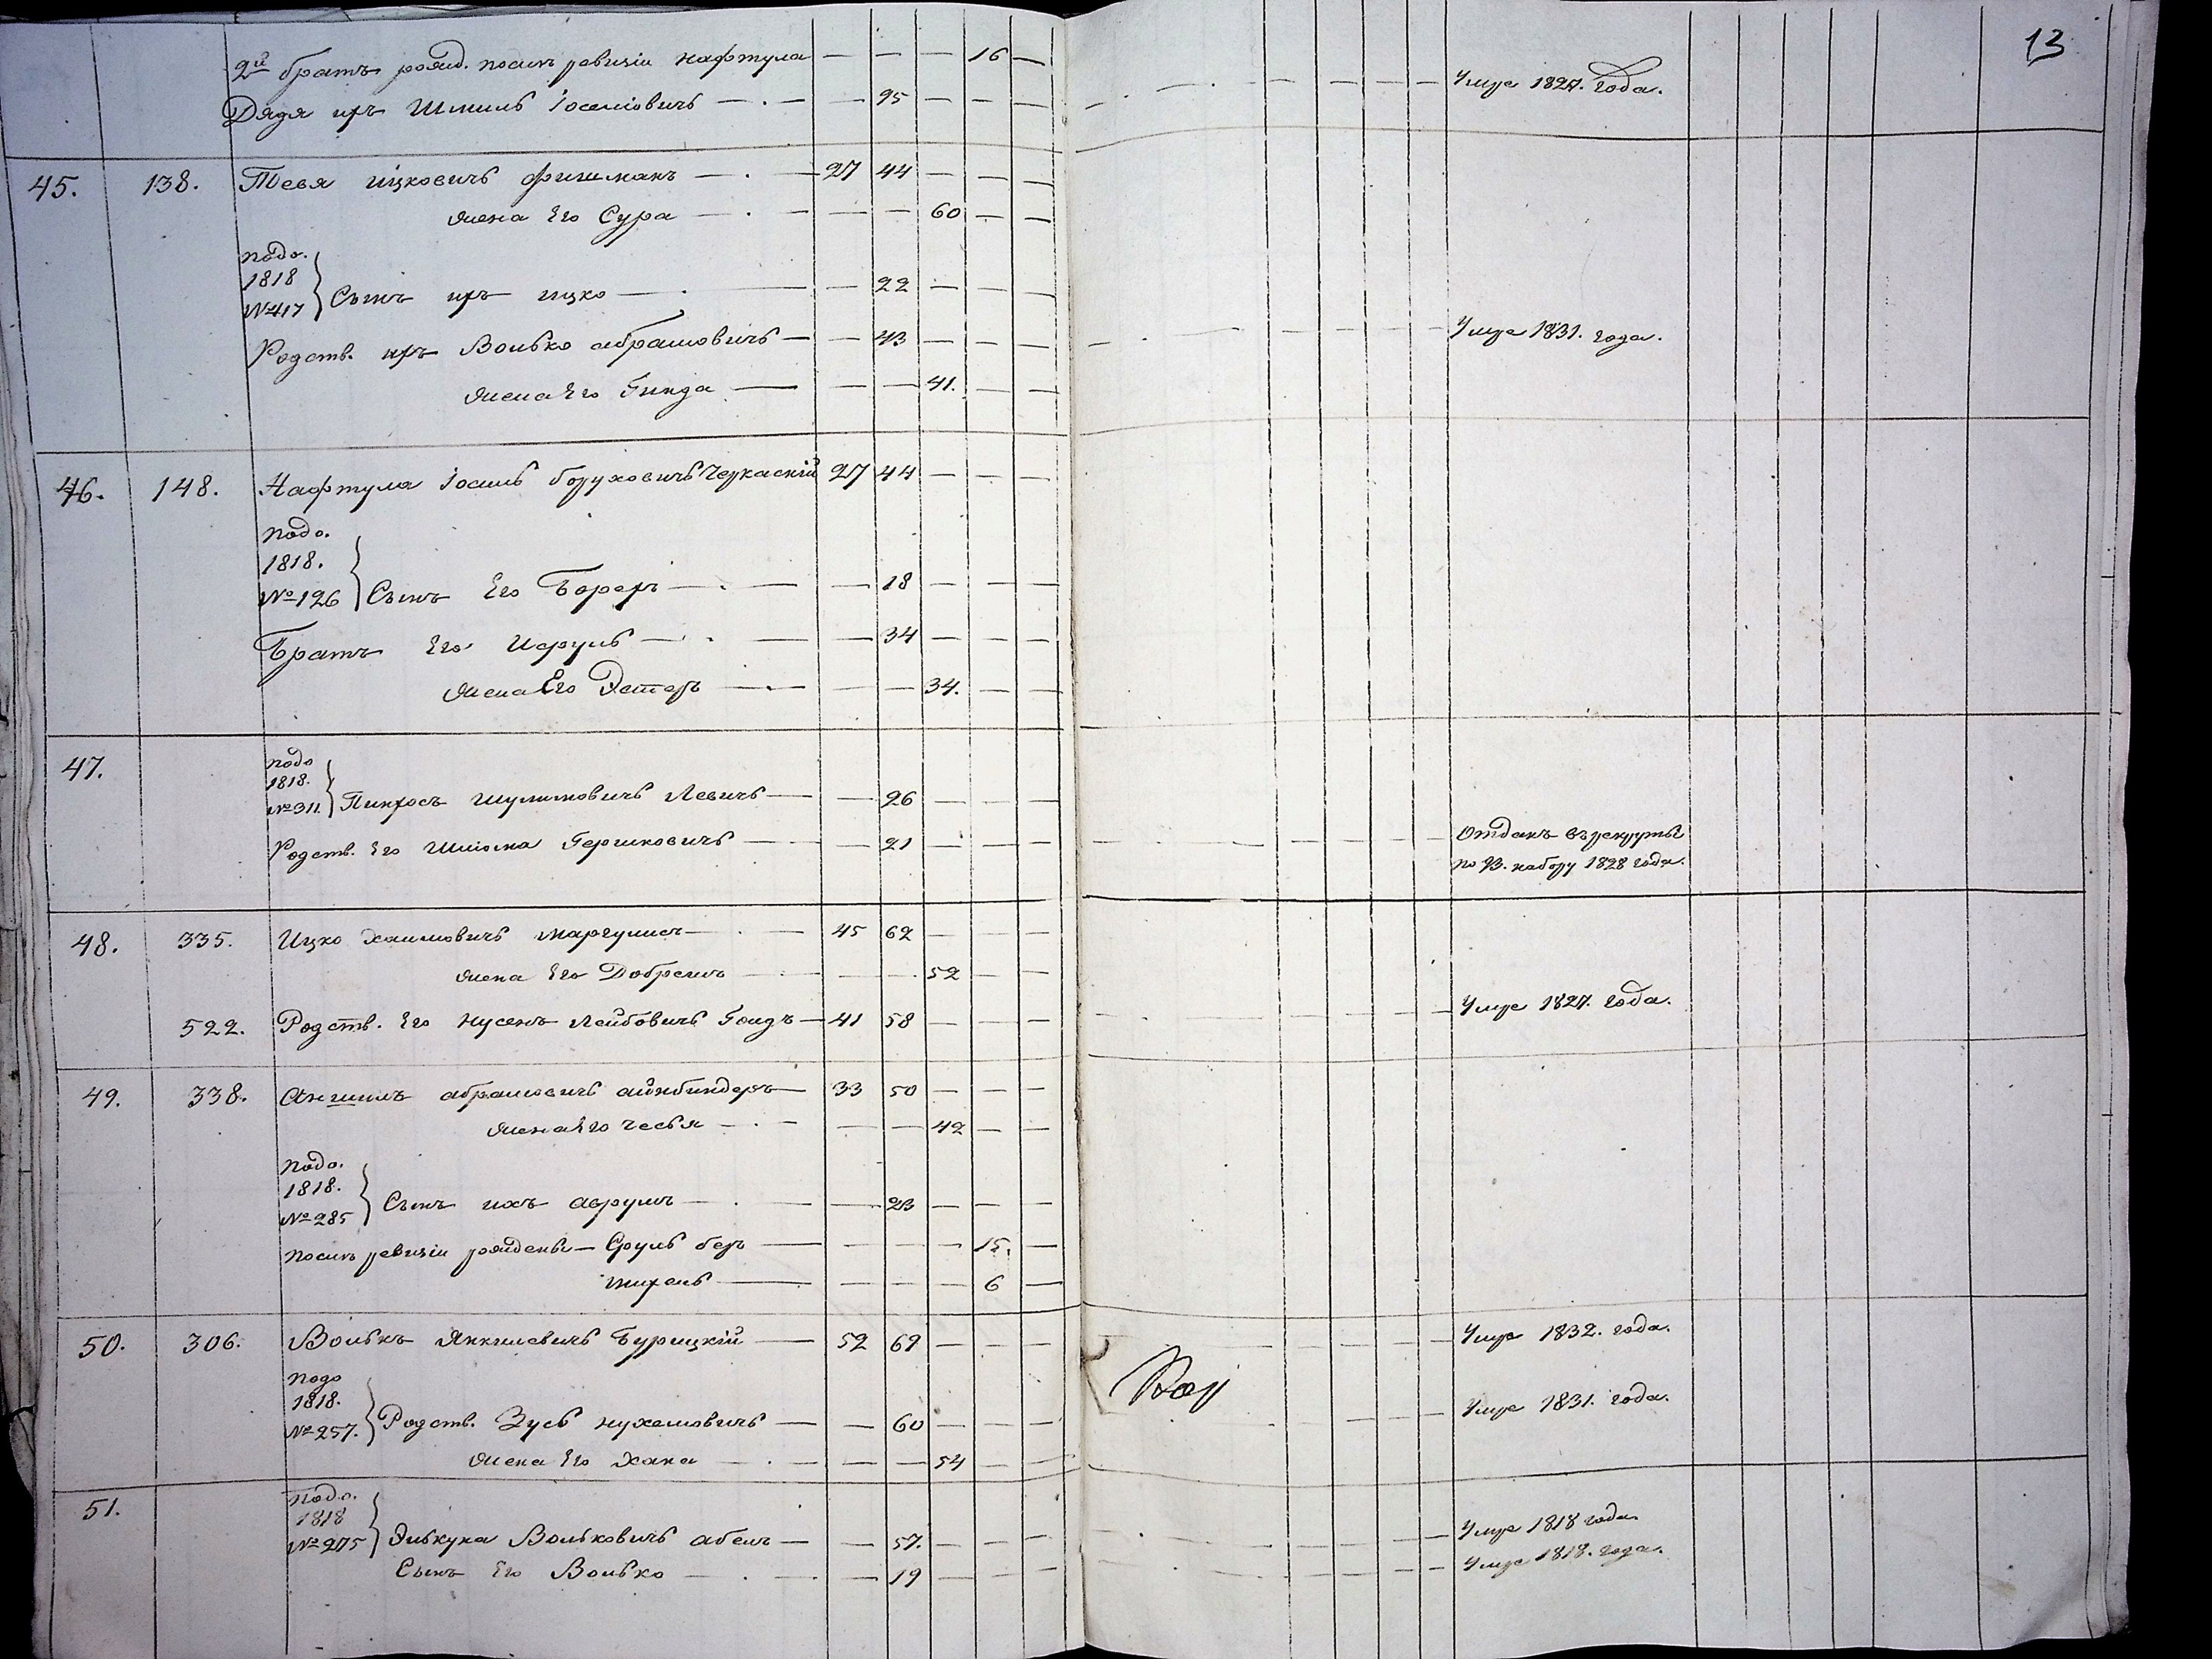 13
2й братъ рожд. посль ревизіи Нафтула — — — 16 —
Дядя ихъ Шмиль Іоселіовичъ — — 95 — — — Умре 1827. года.
45. 138. Тевя Ицковичъ Фишманъ — 27 44 — — —
жена Его Сура — — — 60 — —
подо.
1818
№417 Сынъ ихъ Ицко — — 22 — — —
Родств. ихъ Волько Абрамовичъ — — 43 — — — Умре 1831. года.
жена Его Гинда — — — 41. — —
46. 148. Нафтула Іосиль Боруховичъ Черкаскій 27 44 — — —
подо.
1818.
№126 Сынъ Его Борехъ — — 18 — — —
Братъ Его Исруль — — 34 — — —
жена Его Эстеръ — — — 34. — —
47. подо
1818.
№311. Пинхосъ Шулимовичъ Левичъ — — 26 — — —
Родств. Его Шліома Гершковичъ — — 21 — — — Отданъ въ рекруты
по 93. набору 1828 года.
48. 335. Ицко Хаимовичъ Маргулисъ — 45 62 — — —
жена Его Добрешъ — — — 52 — —
522. Родств. Его Нусенъ Лейбовичъ Гоидъ — 41 58 — — — Умре 1827. года.
49. 338. Аншилъ Абрамовичъ Айнбиндеръ — 33 50 — — —
жена Его Чесья — — — 42 — —
подо.
1818.
№285 Сынъ ихъ Аврумъ — — 23 — — —
посль ревизіи рожденъ — Сруль Беръ — — — — 15. —
Михель — — — — 6 —
50. 306. Волькъ Янкилевичъ Бурицкій — 52 69 — — — Умре 1832. года.
подо
1818.
№257. Родств. Зусь Нухемовичъ — — 60 — — — Умре 1831. года.
жена Его Хана — — — 54 — —
51. подо.
1818
№275 Элькуна Вольковичъ Абель — — 57. — — — Умре 1818 года.
Сынъ Его Волько — — 19 — — — Умре 1818. года.